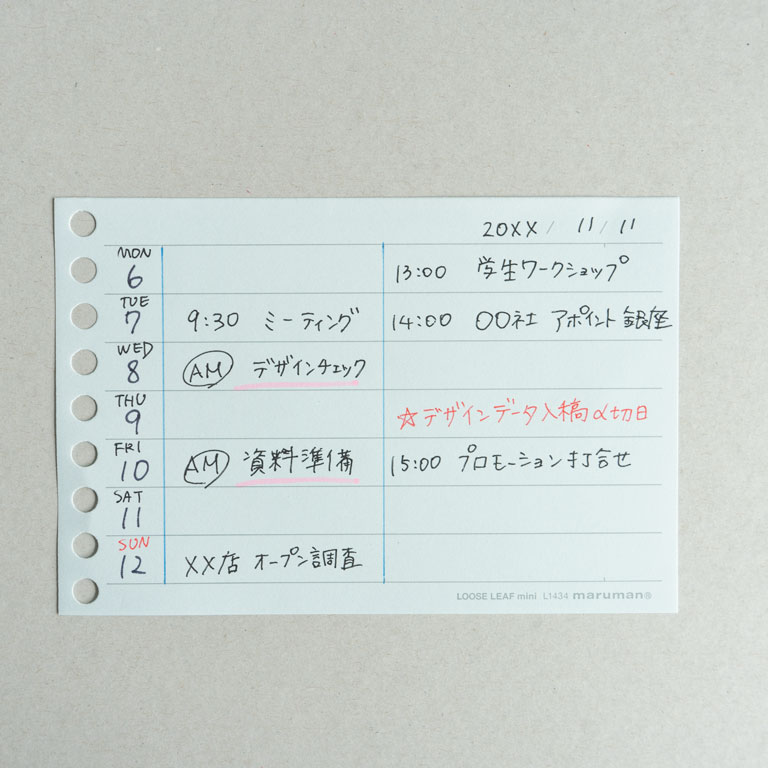 20XX / 11 / 11
MON
6 13:00 学生ワークショップ
TUE
7 9:30 ミーティング 14:00 〇〇社 アポイント 銀座
WED
8 AM デザインチェック
THU
9 ☆デザインデータ入稿〆切日
FRI
10 AM 資料準備 15:00 プロモーション打合せ
SAT
11
SUN
12 XX店 オープン調査
LOOSE LEAF mini L1434 maruman®